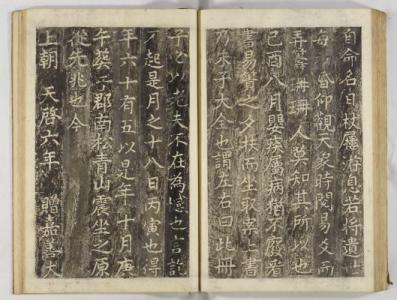 自命名曰杖屨居息若將遺世
每昏仰觀天象時閱易文而
弄筭珊珊人莫知其所以也
己酉八月嬰疾屬病猶不廢看
書易簀之夕扶而坐取案上書
乃朱子大全也謂左右曰此冊
子必以老夫不在為感也言訖
不起是月之十八日丙寅也得
年六十有五以是年十月庚
午葬于郡南松青山震坐之原
從先兆也今
上朝 天啓六年 贈嘉善大